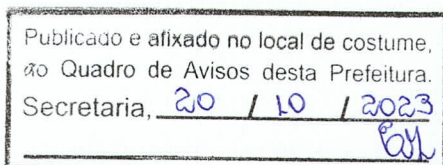 Publicado e afixado no local de costume,
ao Quadro de Avisos desta Prefeitura.
Secretaria, 20 / 10 / 2023